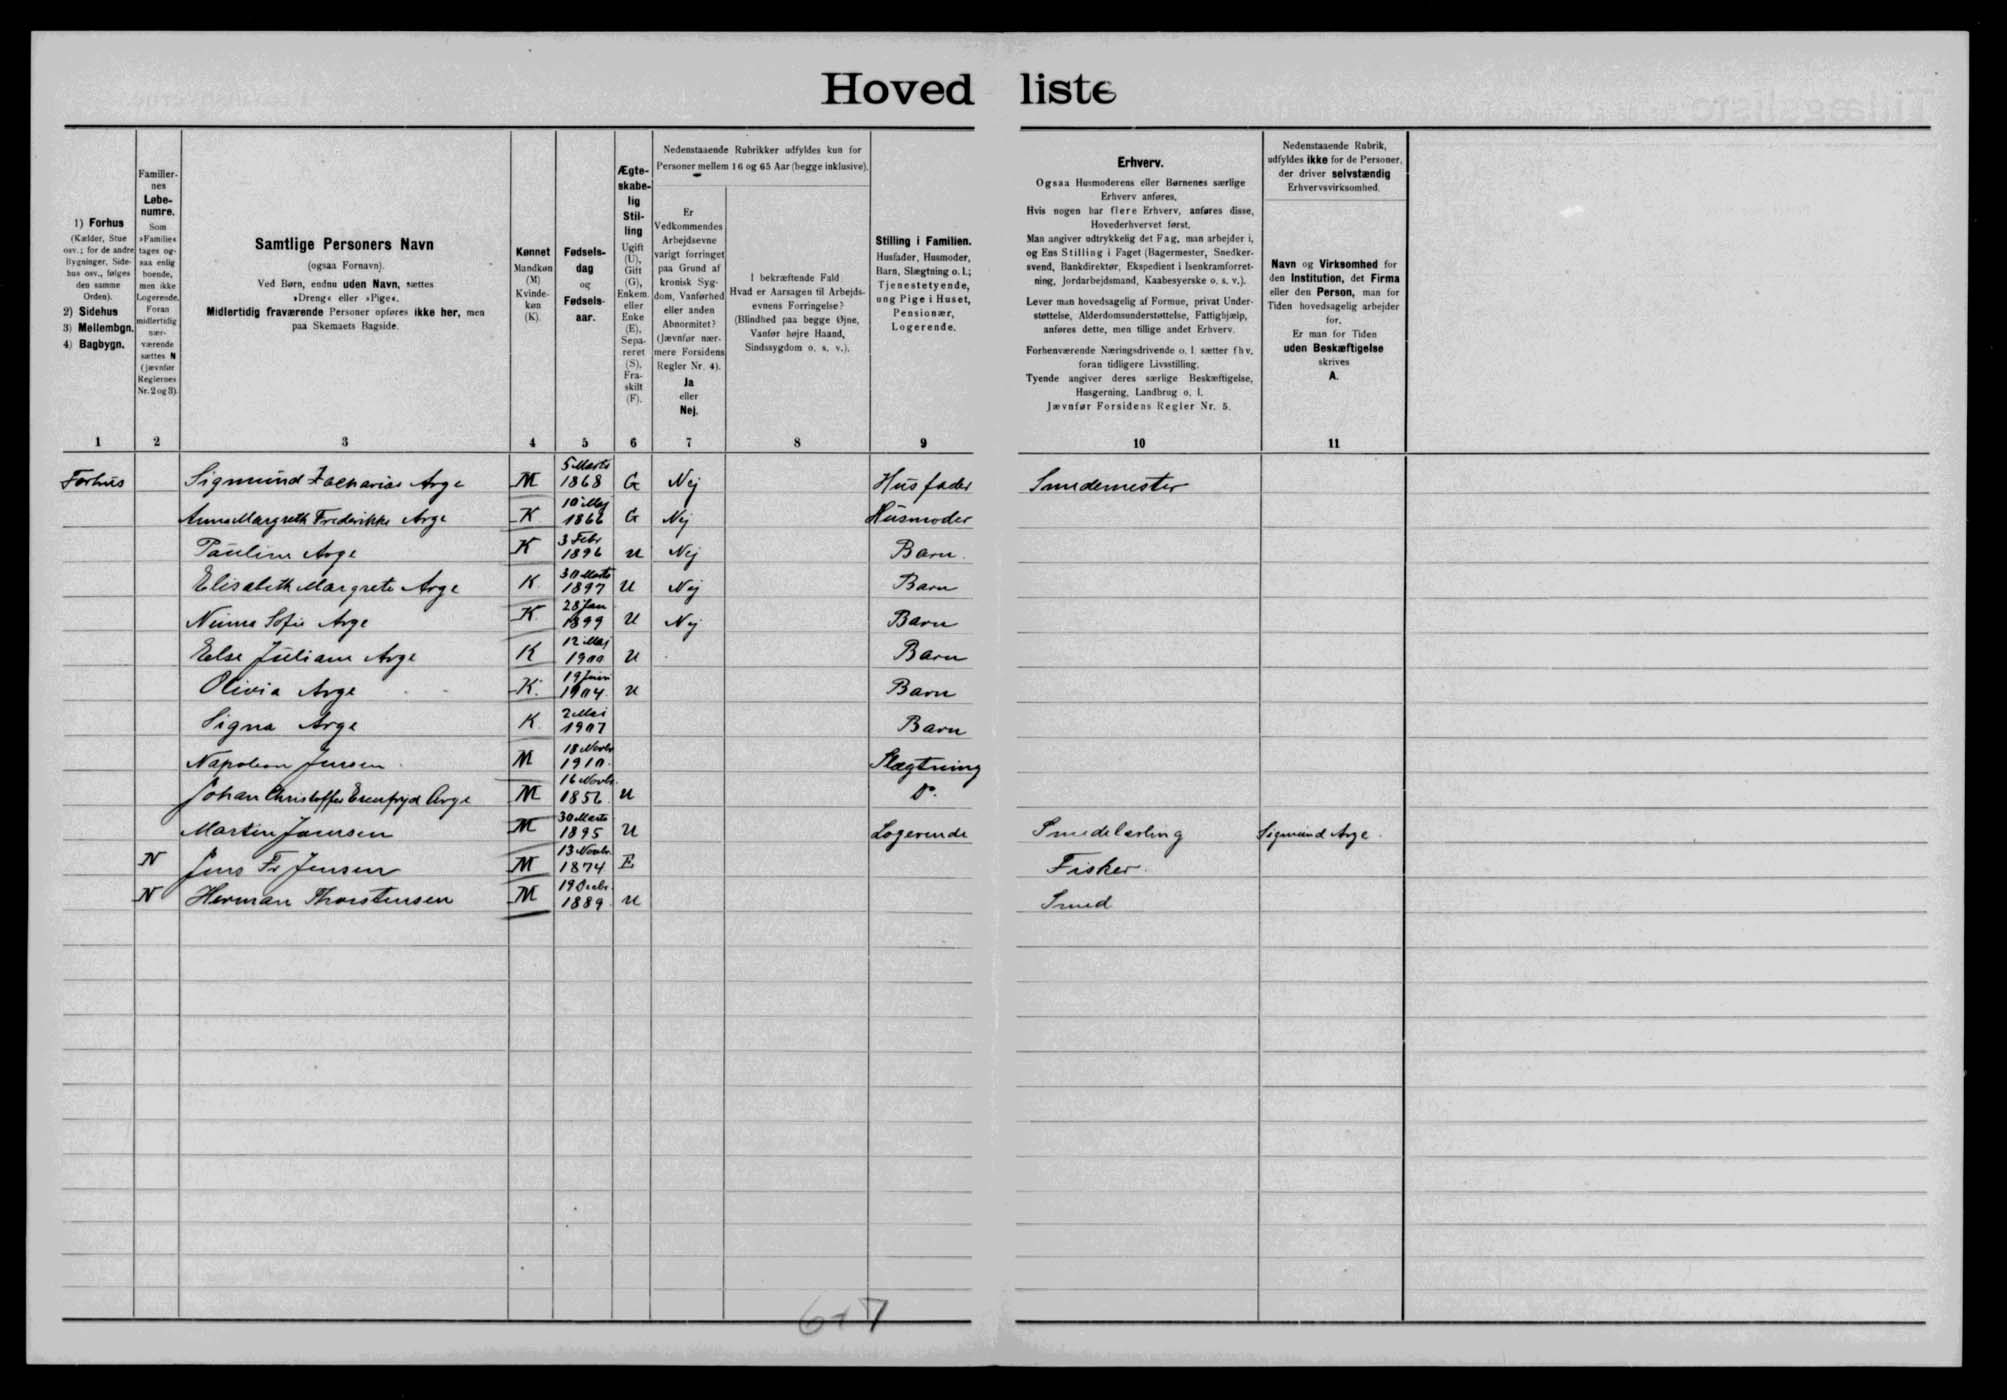 Hoved liste
1) Forhus
(Kælder, Stue
osv.; for de andre
Bygninger, Side-
hus osv., følges
den samme
Orden).
2) Sidehus
3) Mellembgn.
4) Bagbygn.
Familier-
nes
Løbe-
numre.
Som
»Familie«
tages og-
saa enlig
boende,
men ikke
Logerende.
Foran
midlertidig
nær-
værende
sættes N
(jævnfør
Reglernes
Nr. 2 og 3).
Samtlige Personers Navn
(ogsaa Fornavn).
Ved Børn, endnu uden Navn, sættes
»Dreng« eller »Pige«.
Midlertidig fraværende Personer opføres ikke her, men
paa Skemaets Bagside.
Kønnet
Mandkøn
(M)
Kvinde-
køn
(K).
Fødsels-
dag
og
Fødsels-
aar.
Ægte-
skabe-
lig
Stil-
ling
Ugift
(U),
Gift
(G),
Enkem.
eller
Enke
(E),
Sepa-
reret
(S),
Fra-
skilt
(F).
Nedenstaaende Rubrikker udfyldes kun for
Personer mellem 16 og 65 Aar (begge inklusive).
Er
Vedkommendes
Arbejdsevne
varigt forringet
paa Grund af
kronisk Syg-
dom, Vanførhed
eller anden
Abnormitet?
(Jævnfør nær-
mere Forsidens
Regler Nr. 4).
Ja
eller
Nej.
I bekræftende Fald
Hvad er Aarsagen til Arbejds-
evnens Forringelse?
(Blindhed paa begge Øjne,
Vanfør højre Haand,
Sindssygdom o. s. v.).
Stilling i Familien.
Husfader, Husmoder,
Barn, Slægtning o. l.;
Tjenestetyende,
ung Pige i Huset,
Pensionær,
Logerende.
Erhverv.
Ogsaa Husmoderens eller Børnenes særlige
Erhverv anføres,
Hvis nogen har flere Erhverv, anføres disse,
Hovederhvervet først,
Man angiver udtrykkelig det Fag, man arbejder i,
og Ens Stilling i Faget (Bagermester, Snedker-
svend, Bankdirektør, Ekspedient i Isenkramforret-
ning, Jordarbejdsmand, Kaabesyerske o. s. v.).
Lever man hovedsagelig af Formue, privat Under-
støttelse, Alderdomsunderstøttelse, Fattighjælp,
anføres dette, men tillige andet Erhverv.
Forhenværende Næringsdrivende o. l. sætter fhv.
foran tidligere Livsstilling.
Tyende angiver deres særlige Beskæftigelse,
Husgerning, Landbrug o. l.
Jævnfør Forsidens Regler Nr. 5.
Nedenstaaende Rubrik,
udfyldes ikke for de Personer,
der driver selvstændig
Erhvervsvirksomhed.
Navn og Virksomhed for
den Institution, det Firma
eller den Person, man for
Tiden hovedsagelig arbejder
for.
Er man for Tiden
uden Beskæftigelse
skrives
A.
1 2 3 4 5 6 7 8 9 10 11
Forhus Sigmund Zacharias Arge M 5 Marts 1868 G Nej Husfader Smedemester
Anna Margreth Frederikke Arge K 10 Maj 1866 G Nej Husmoder
Pauline Arge K 3 Febr 1896 U Nej Barn.
Elisabeth Margrete Arge K. 30 Marts 1897 U Nej Barn
Sofie Arge K. 28 Jan 1899 U Nej Barn
Else Juliane Arge K 12 Maj 1900 U Barn
Olivia Arge K. 19 Juni 1904. U Barn
Signa Arge K. 2 Mai 1907 Barn
Napoleon Jensen M 18 Novbr 1910. Slægtning
Johan Christoffer Erenfryd Arge M 16 Novbr. 1856. U Do.
Martin Joensen M 30 Marts 1895 U Logerende Smedelærling Sigmund Arge.
N Jens Fr Jensen M 13 Novbr. 1874 E Fisker.
N Herman Thorstensen M 19 Decbr. 1889. U Smed
6+7